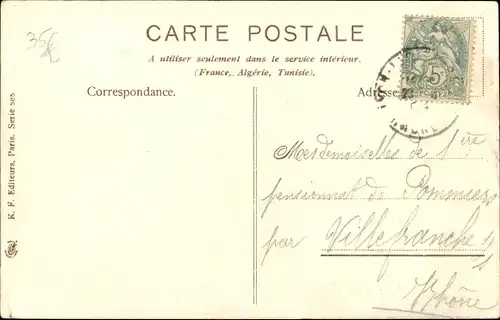 CARTE POSTALE
A utiliser seulement dans le service intérieur.
(France, Algérie, Tunisie).
Correspondance.
Adresse
Mesdemoiselles de 1ère
pensionnat de Pommiers
par Villefranche s/s
Rhône
K. F. Editeurs, Paris, Serie 585
35
5